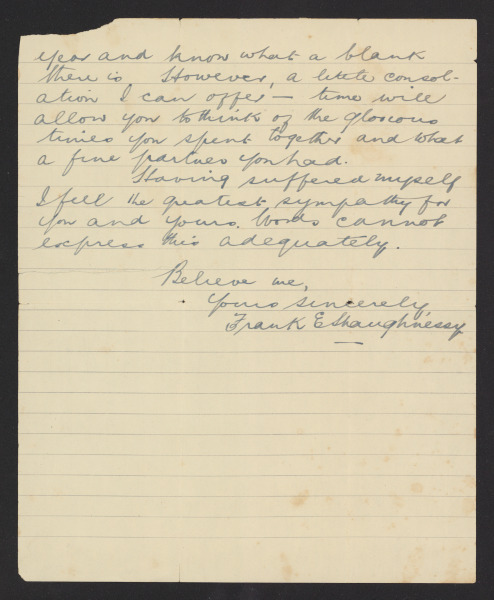 year and know what a blank
there is. However, a little consol-
ation I can offer — time will
allow you to think of the glorious
times you spent together and what
a fine partner you had.
Having suffered myself
I feel the greatest sympathy for
you and yours. Words cannot
express this adequately.
Believe me,
Yours sincerely,
Frank E Shaughnessy